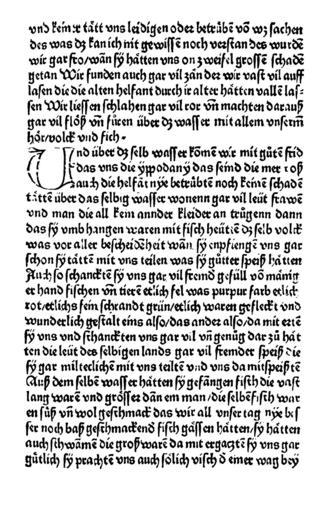 vnd keiner tätt vns leidigen oder betrübē vō wz sachen
des was dz kan ich nit gewissen noch verstan des wurdē
wir gar fro/wān sÿ hätten vns on zweifel grossen schadē
getan Wir funden auch gar vil zän der wir vast vil auff
lasen die die alten helfant durch ir alter hätten vallē las-
sen Wir liessen schlahen gar vil ror vn̄ machten darauß
gar vil flöß vn̄ fůren über dz wasser mit allem vnserm̄
hör/volck vnd fich·
Vnd über dz selb wasser komē wir mit gůtē frid
das vns die ÿppodanÿ das seind die mer roß
auch die helfāt nÿe betrübtē noch keinē schadē
tätē über das selbig wasser wonenn gar vil leüt frawen
vnd man die all kem annder kleider an trůgenn dann
das sÿ vmbhangen waren mit fisch heütē dz selb volck
was vor aller bescheidēheit wān sÿ enpfiengē vns gar
schon sÿ tätē mit vns teilen was sÿ gůtter speiß hätten
Auch so schancktē sÿ vns gar vil fremd gefüll vō mānig
er hand fischen vn̄ tierē etlich fel was purpur farb etlich
rot/etlichs fein schrandt grün/etlich waren gefleckt vnd
wunderlich gestalt eins also/das ander also/da mit ertē
sÿ vns vnd schanckten vns gar vil vn̄ genůg dar zů hät
ten die leüt des selbigen lands gar vil fremder speiß die
sÿ gar miltecliche mit vns teiltē vnd vns da mit speißtē
Auß dem selbē wasser hätten sÿ gefangen fisch die vast
lang warē vnd grösser dān em man/die selbē fisch war
en süß vn̄ wol geschmack das wir all vnser tag nÿe bes
ser noch baß geschmackend fisch gässen hätten/sÿ hätten
auch schwāmē die groß warē da mit ergaczten sÿ vns gar
gütlich sÿ prachten vns auch sölich visch d einer wag bey